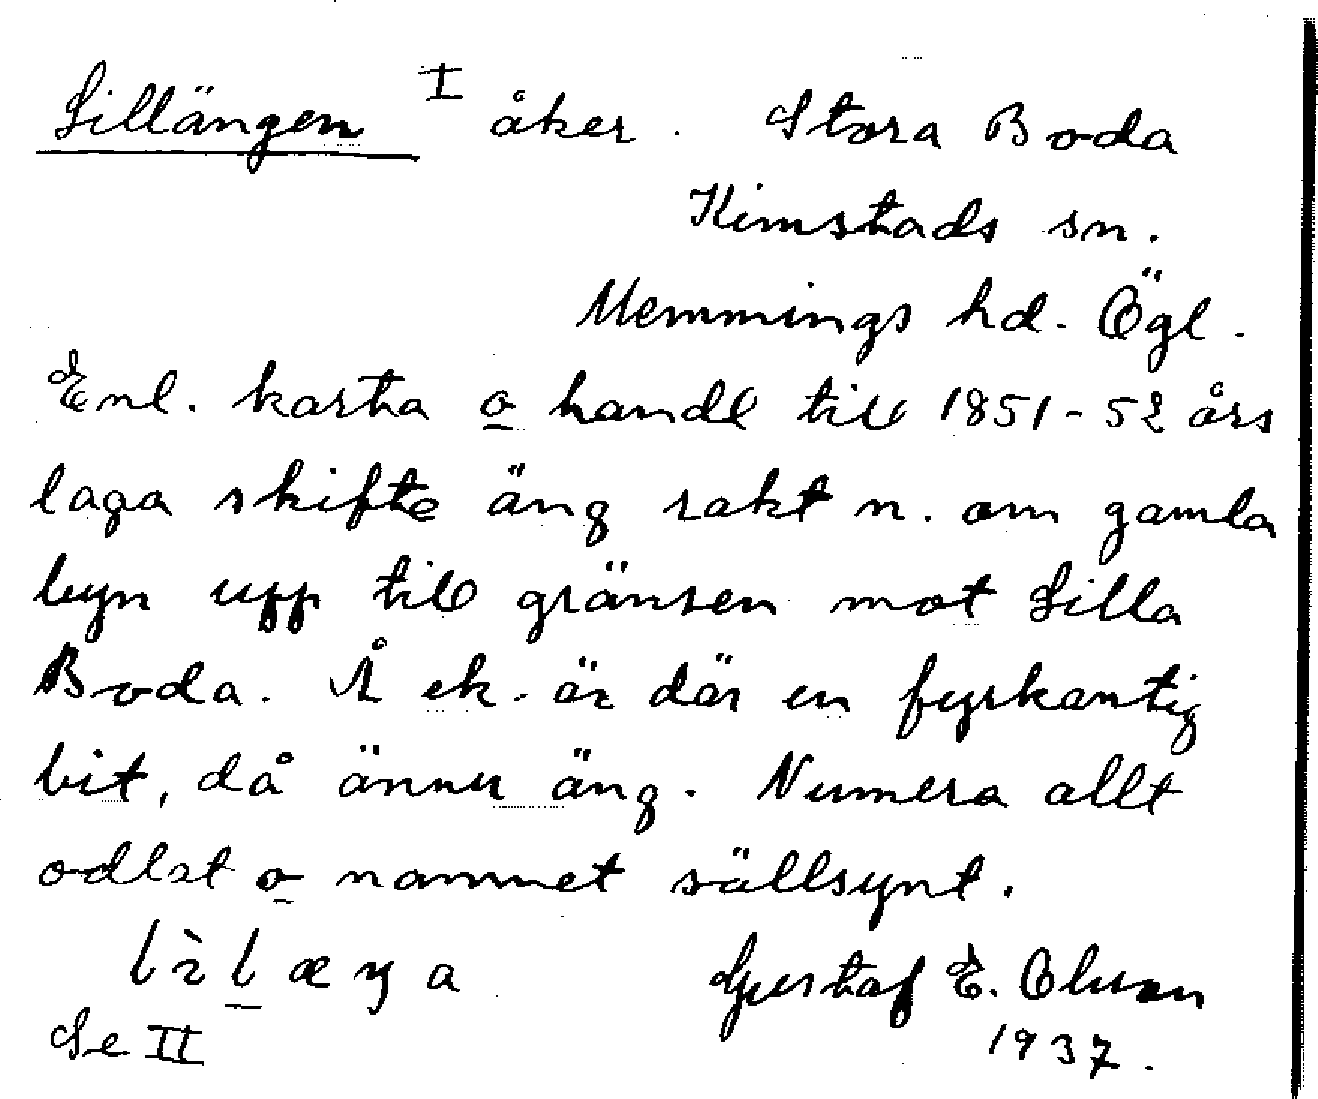 Lillängen I åker. Stora Boda
Kimstads sn.
Memmings hd. Ögl.
Enl. karta o handl till 1851-52 års
laga skifte äng rakt n. om gamla
byn upp till gränsen mot Lilla
Boda. Å ek. är där en fyrkantig
bit, då ännu äng. Numera allt
odlat o namnet sällsynt.
Gustaf E.
Se II 1937.